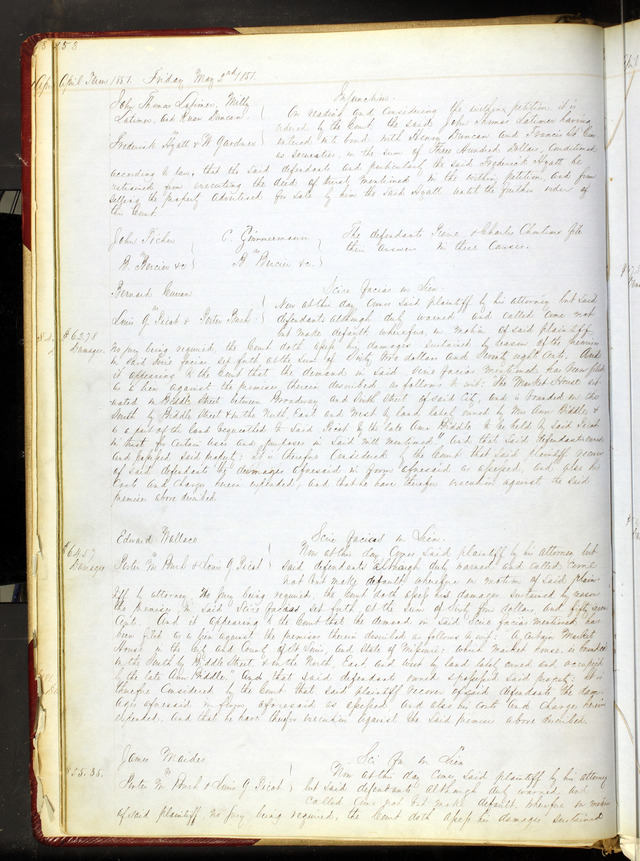 153
April Term 1851. Friday May 2nd 1851.
Injunction.
John Thomas Latimer, Milly
Latimer, and Duncan
Frederick Hyatt & W Gardner
On reading and Considering the within petition it is
ordered by the Court the said John Thomas Latimer having
entered into bond with Henry Duncan and Francis
as securities, in the sum of Three Hundred Dollars, Conditioned
according to law, that the said defendants and particularly the said Frederick Hyatt be
restrained from executing the deed of trust mentioned in the within petition, and from
selling the property advertised for sale by him the said Hyatt until the further order of
this Court.
John
A Bercier &c
C. Zimmermann
A Bercier &c.
The defendants & Charles file
their answer in these causes.
Scire facias on Lien.
Bernard
Louis G. Picot & Porter Burk
Now at this day Comes said plaintiff by his attorney but said
defendants although duly warned and called come not
but make default, wherefore, on motion of said plaintiff
$62.78
Damages.
No jury being required, the Court doth assess his damages sustained by reason of the premises
in said Scire facias set forth at the sum of Sixty two dollars and Seventy eight Cents. And
it appearing to the Court that the demand in said Scire facias mentioned has been filed
as a lien against the premises therein described as follows to wit: The Market House sit-
uated on Biddle Street between Broadway and Sixth Street of said City, and is bounded on the
South by Biddle Street & on the North, East and West by land lately owned by Mrs Ann Biddle, &
is a part of the land bequeathed to said Picot by the late Ann Biddle to be held by said Picot
in trust for certain uses and purposes in said will mentioned" And that said defendants owned
and possessed said property: It is therefore Considered by the Court that said plaintiff recover
of said defendants the damages aforesaid in form aforesaid as assessed, and also his
Costs and Charges herein expended, and that he have therefor execution against the said
premises above described.
Scire facias on Lien.
Edward Wallace
Porter Burk & Louis G. Picot
$64.57
Damages.
Now at this day Comes said plaintiff by his attorney but
said defendants although duly warned and called, come
not but make default, wherefore on motion of said plain-
tiff by attorney. No jury being required, the Court doth assess his damages, sustained by reason
of the premises in said Scire facias, set forth, at the sum of Sixty four dollars, and fifty seven
Cents. And it appearing to the Court that the demand in said Scire facias mentioned, has
been filed as a lien against the premises therein described as follows to wit: A certain Market
House in the City and County of St Louis, and State of Missouri: which market house is bounded
on the South by Biddle Street, & on the North, East and West by land lately owned and occupied
by the late Ann Biddle." And that said defendant owned & possessed said property: It is
therefore Considered by the Court that said plaintiff recover of said defendants the dam-
ages aforesaid in form aforesaid as assessed, and also his Costs and Charges herein
expended, and that he have therefor execution against the said premises above described.
Sci Fa on Lien
James
Porter Burk & Louis G. Picot
$55.35.
Now at this day Comes said plaintiff by his attorney
but said defendants although duly warned and
called Come not but make default, wherefore on motion
of said plaintiff, no jury being required, the Court doth assess his damages sustained